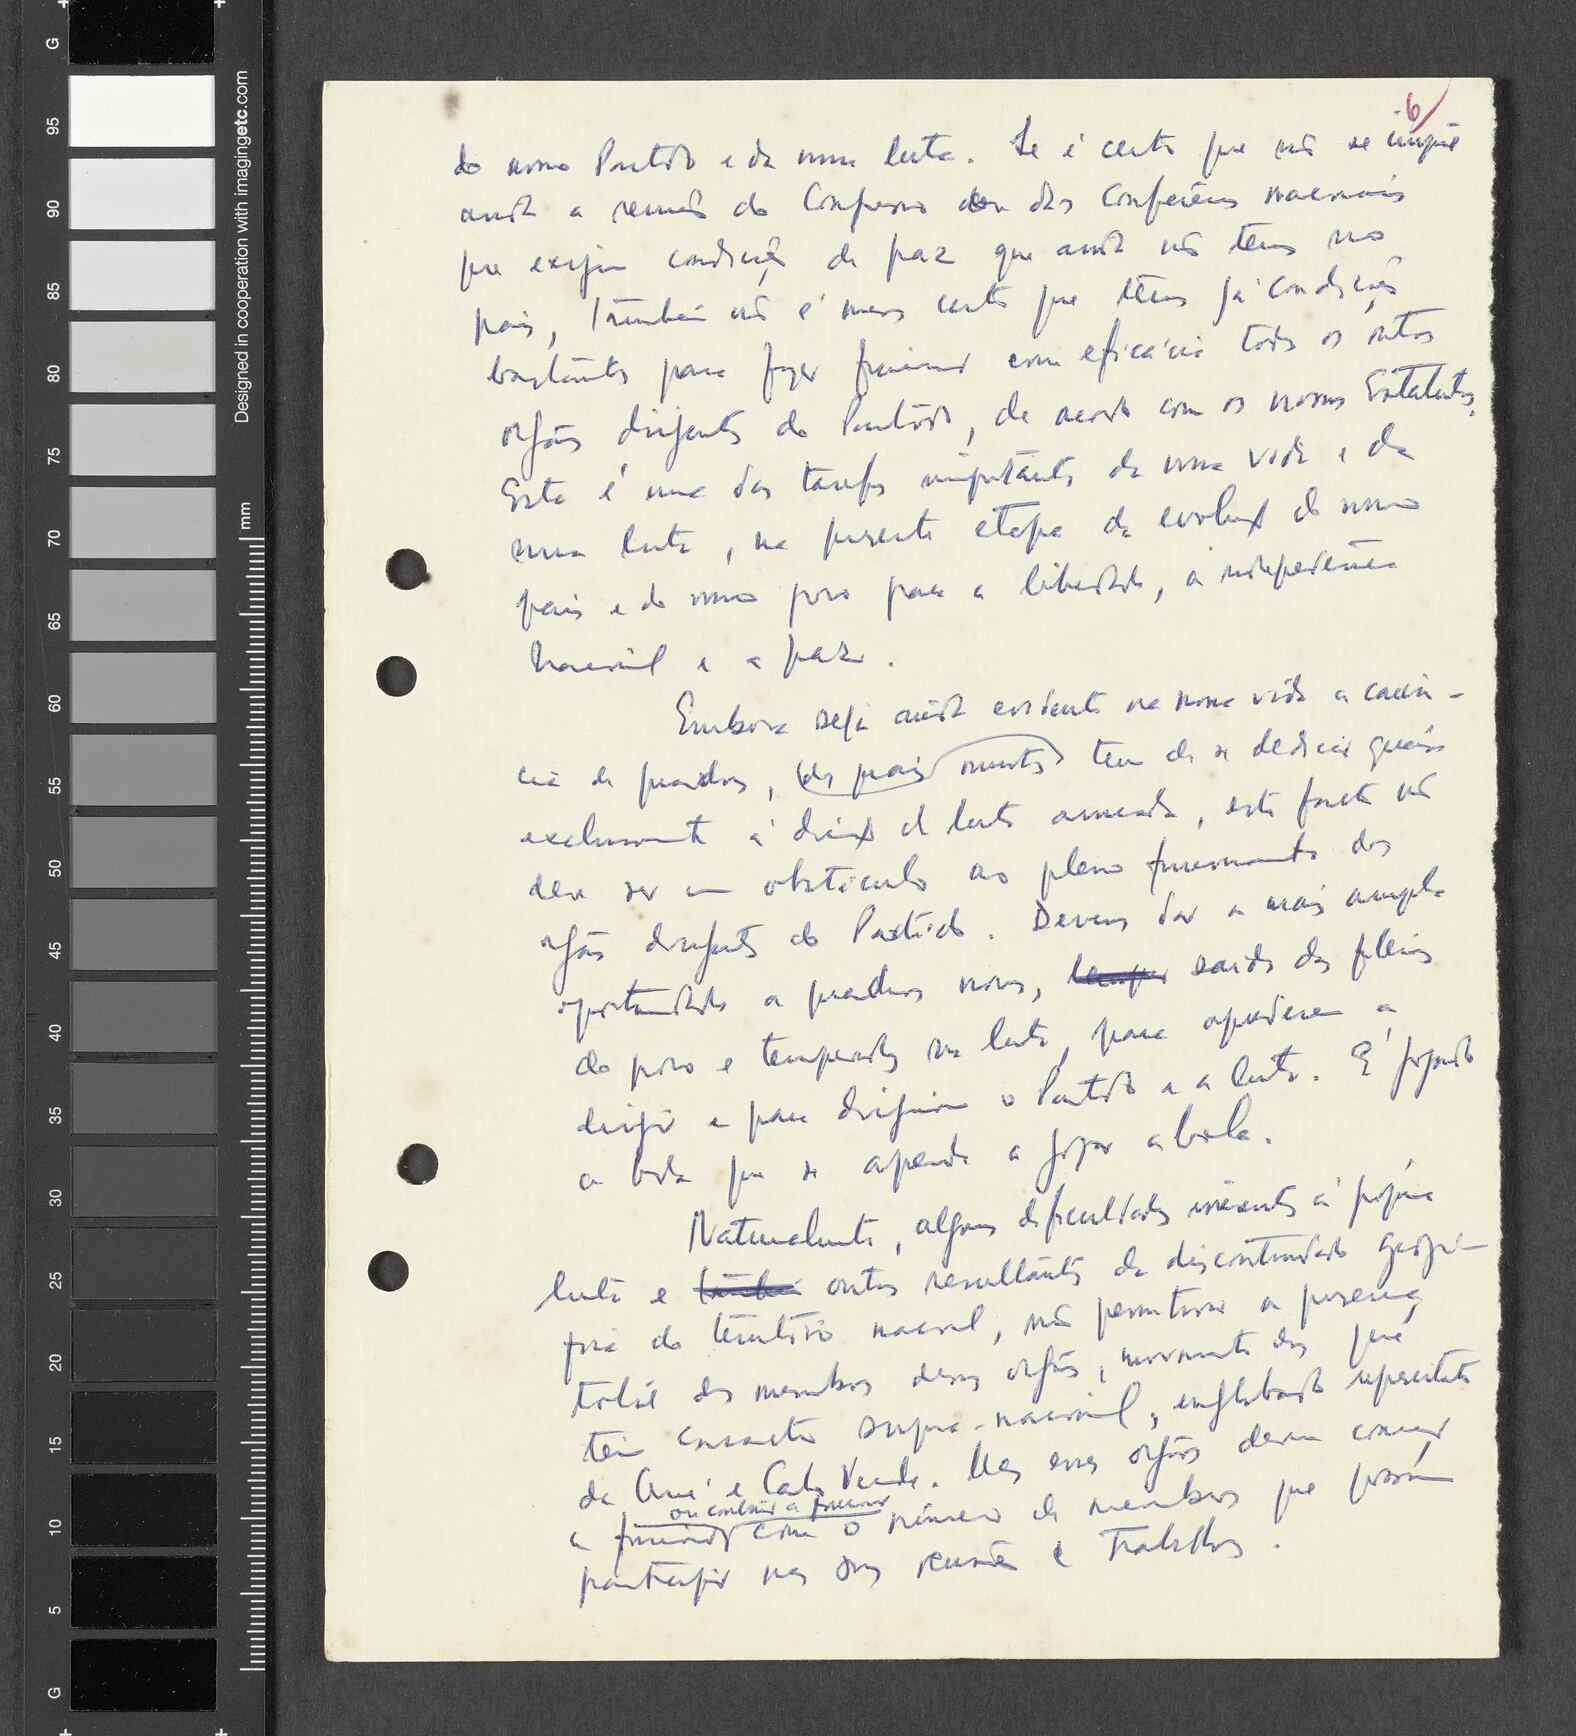 6
do nosso Partido e da nossa luta. Se é certo que não se impõe
ainda a reunião do Congresso das Conferências nacionais
que exigem condições de paz que ainda não temos no
país, também não é menos certo que temos já condições
bastantes para fazer funcionar com eficácia todos os outros
orgãos dirigentes do Partido, de acordo com os nossos Estatutos.
Esta é uma das tarefas importantes da nossa vida e da
nossa luta, na presente etapa da evolução do nosso
país e do nosso povo para a liberdade, a independência
nacional e a paz.
Embora seja ainda evidente na nossa vida a carên-
cia de quadros, dos quais muitos tem de se dedicar quási
exclusivamente à direcção da luta armada, este facto não
deve ser um obstáculo ao pleno funcionamento dos
orgãos dirigentes do Partido. Devemos dar a mais ampla
oportunidade a quadros novos, saídos das fileiras
do povo e temperados na luta, para aprenderem a
dirigir e para dirigirem o Partido e a luta. É jogando
a bola que se aprende a jogar a bola.
Naturalmente, algumas dificuldades inerentes à própria
luta e outras resultantes da descontinuidade geográ-
fica do território nacional, não permitirão a presença
total dos membros desses orgãos, nomeadamente dos que
têm caracter supra-nacional, englobando representantes
da Guiné e Cabo Verde. Mas esses orgãos devem começar
ou continuar a funcionar
a funcionar com o número de membros que possam
participar nas suas reuniões e trabalhos.
G
95
90
85
80
75
70
65
60
55
50
45
40
35
30
25
20
15
10
5
G
mm
Designed in cooperation with imagingetc.com